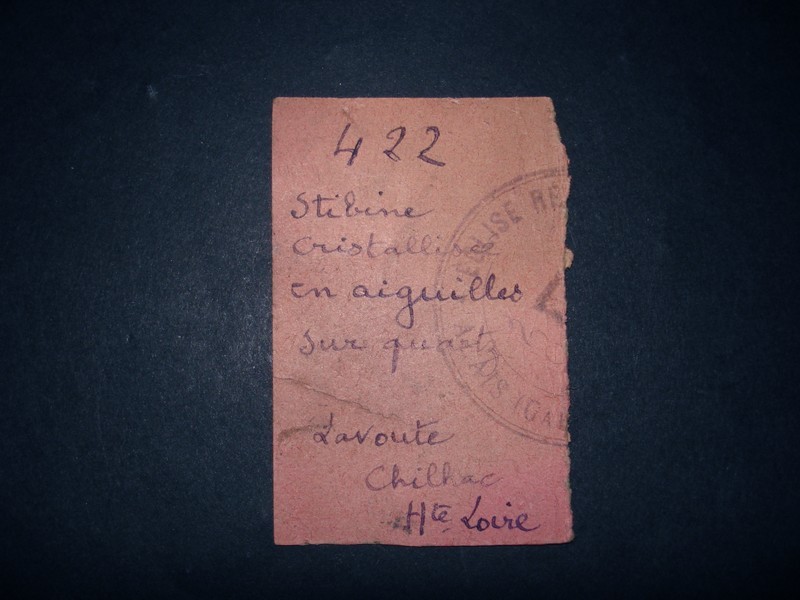 422
Stibine
cristallisée
en aiguilles
sur quartz
Lavoute
Chilhac
Hte Loire
ÉGLISE RE